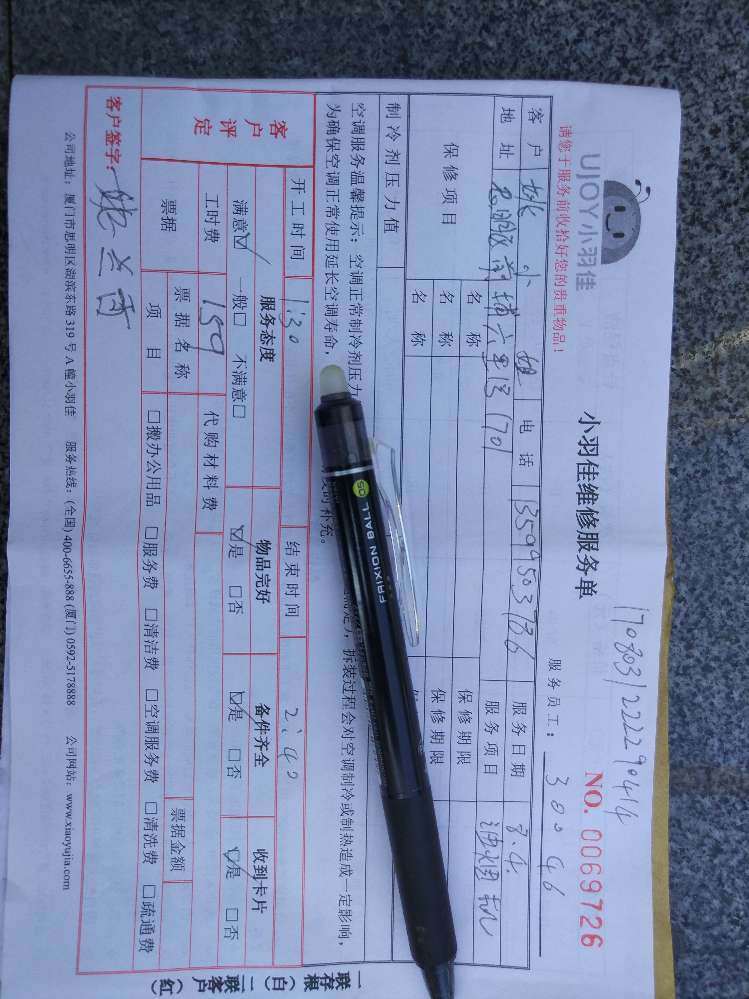 1708031222290414
UJOY小羽佳
小羽佳维修服务单
NO. 0069726
请您于服务前收拾好您的贵重物品!
服务员工: 30046
客户 姚小姐 电话 13599503736 服务日期 8.4.
地址 前埔六里13 1701 服务项目 油烟机
保修项目 名称 保修期限
名称 保修期限
名称
制冷剂压力值
空调服务温馨提示: 空调正常制冷剂压力
拆装过程会对空调制冷或制热造成一定影响,
为确保空调正常使用延长空调寿命,
的补充。
开工时间 1:30 结束时间 2:40
客户评定 服务态度 物品完好 备件齐全 收到卡片
满意☑ 一般□ 不满意□ ☑是 □否 ☑是 □否 ☑是 □否
工时费 159 代购材料费
票据 票据名称 票据金额
项目 □搬办公用品 □服务费 □清洁费 □空调服务费 □清洗费 □疏通费
客户签字: 姚兰香
公司地址: 厦门市思明区湖滨东路 319 号 A 幢小羽佳 服务热线: (全国) 400-6655-888 (厦门) 0592-5178888 公司网站: www.xiaoyujia.com
一联存根(白) 二联客户(红)
FRIXION BALL 05